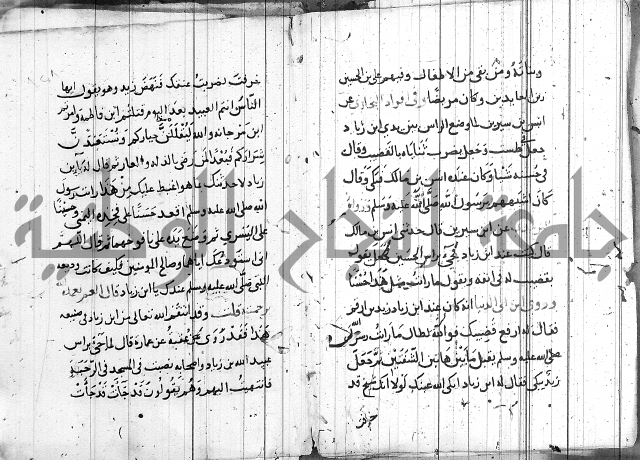 وساقه ومن بقى من الاطفال وفيهم على بن الحسين
زين العابدين وكان مريضا وفى افراد البخارى عن
انس بن سيرين لما وضع الراس بين يدى ابن زياد
جعل فى طست وجعل يضرب ثناياه بالقضيب وقال
فى حسنه شيا وكان عنده انس بن مالك فبكى وقال
كان اشبههم برسول الله صلى الله عليه وسلم
عن ابن سيرين قال حدثنى انس بن مالك
قال كنت عند ابن زياد فجئ براس الحسين فجعل يقول
بقضيب له فى انفه ويقول ما رايت مثل هذا حسنا
وروى ابن ابى الدنيا انه كان عند ابن زياد زيد بن ارقم
فقال له ارفع قضيبك فوالله لطال ما رايت رسول الله
صلى الله عليه وسلم يقبل ما بين هاتين الشفتين ثم جعل
زيد يبكى فقال له ابن زياد ابكى الله عينك لولا انك شيخ قد
خرفت
خرفت لضربت عنقك فنهض زيد وهو يقول ايها
الناس انتم العبيد بعد اليوم قتلتم ابن فاطمة وامرتم
ابن مرجانه والله ليقتلن خياركم ويستعبدن
شراركم فبعدا لمن رضى بالذلة والعار ثم قال يا ابن
زياد لاحدثنك بما هو اغيظ عليك من هذا رايت رسول
الله صلى الله عليه وسلم اقعد حسنا على فخذه اليمنى وحسينا
على اليسرى ثم وضع يده على يافوخهما ثم قال اللهم
انى استودعك اياهما وصالح المومنين فكيف كانت وديعة
النبى صلى الله عليه وسلم عندك يا ابن زياد قال
قلت وقد انتقم الله تعالى من ابن زياد فى صنيعه
هذا فقد روى عن عمارة قال لما جئ براس
عبيد الله بن زياد واصحابه نصبت فى المسجد فى الرحبة
فانتهيت اليهم وهم يقولون قد جات قد جات
جامعة النجاح الوطنية